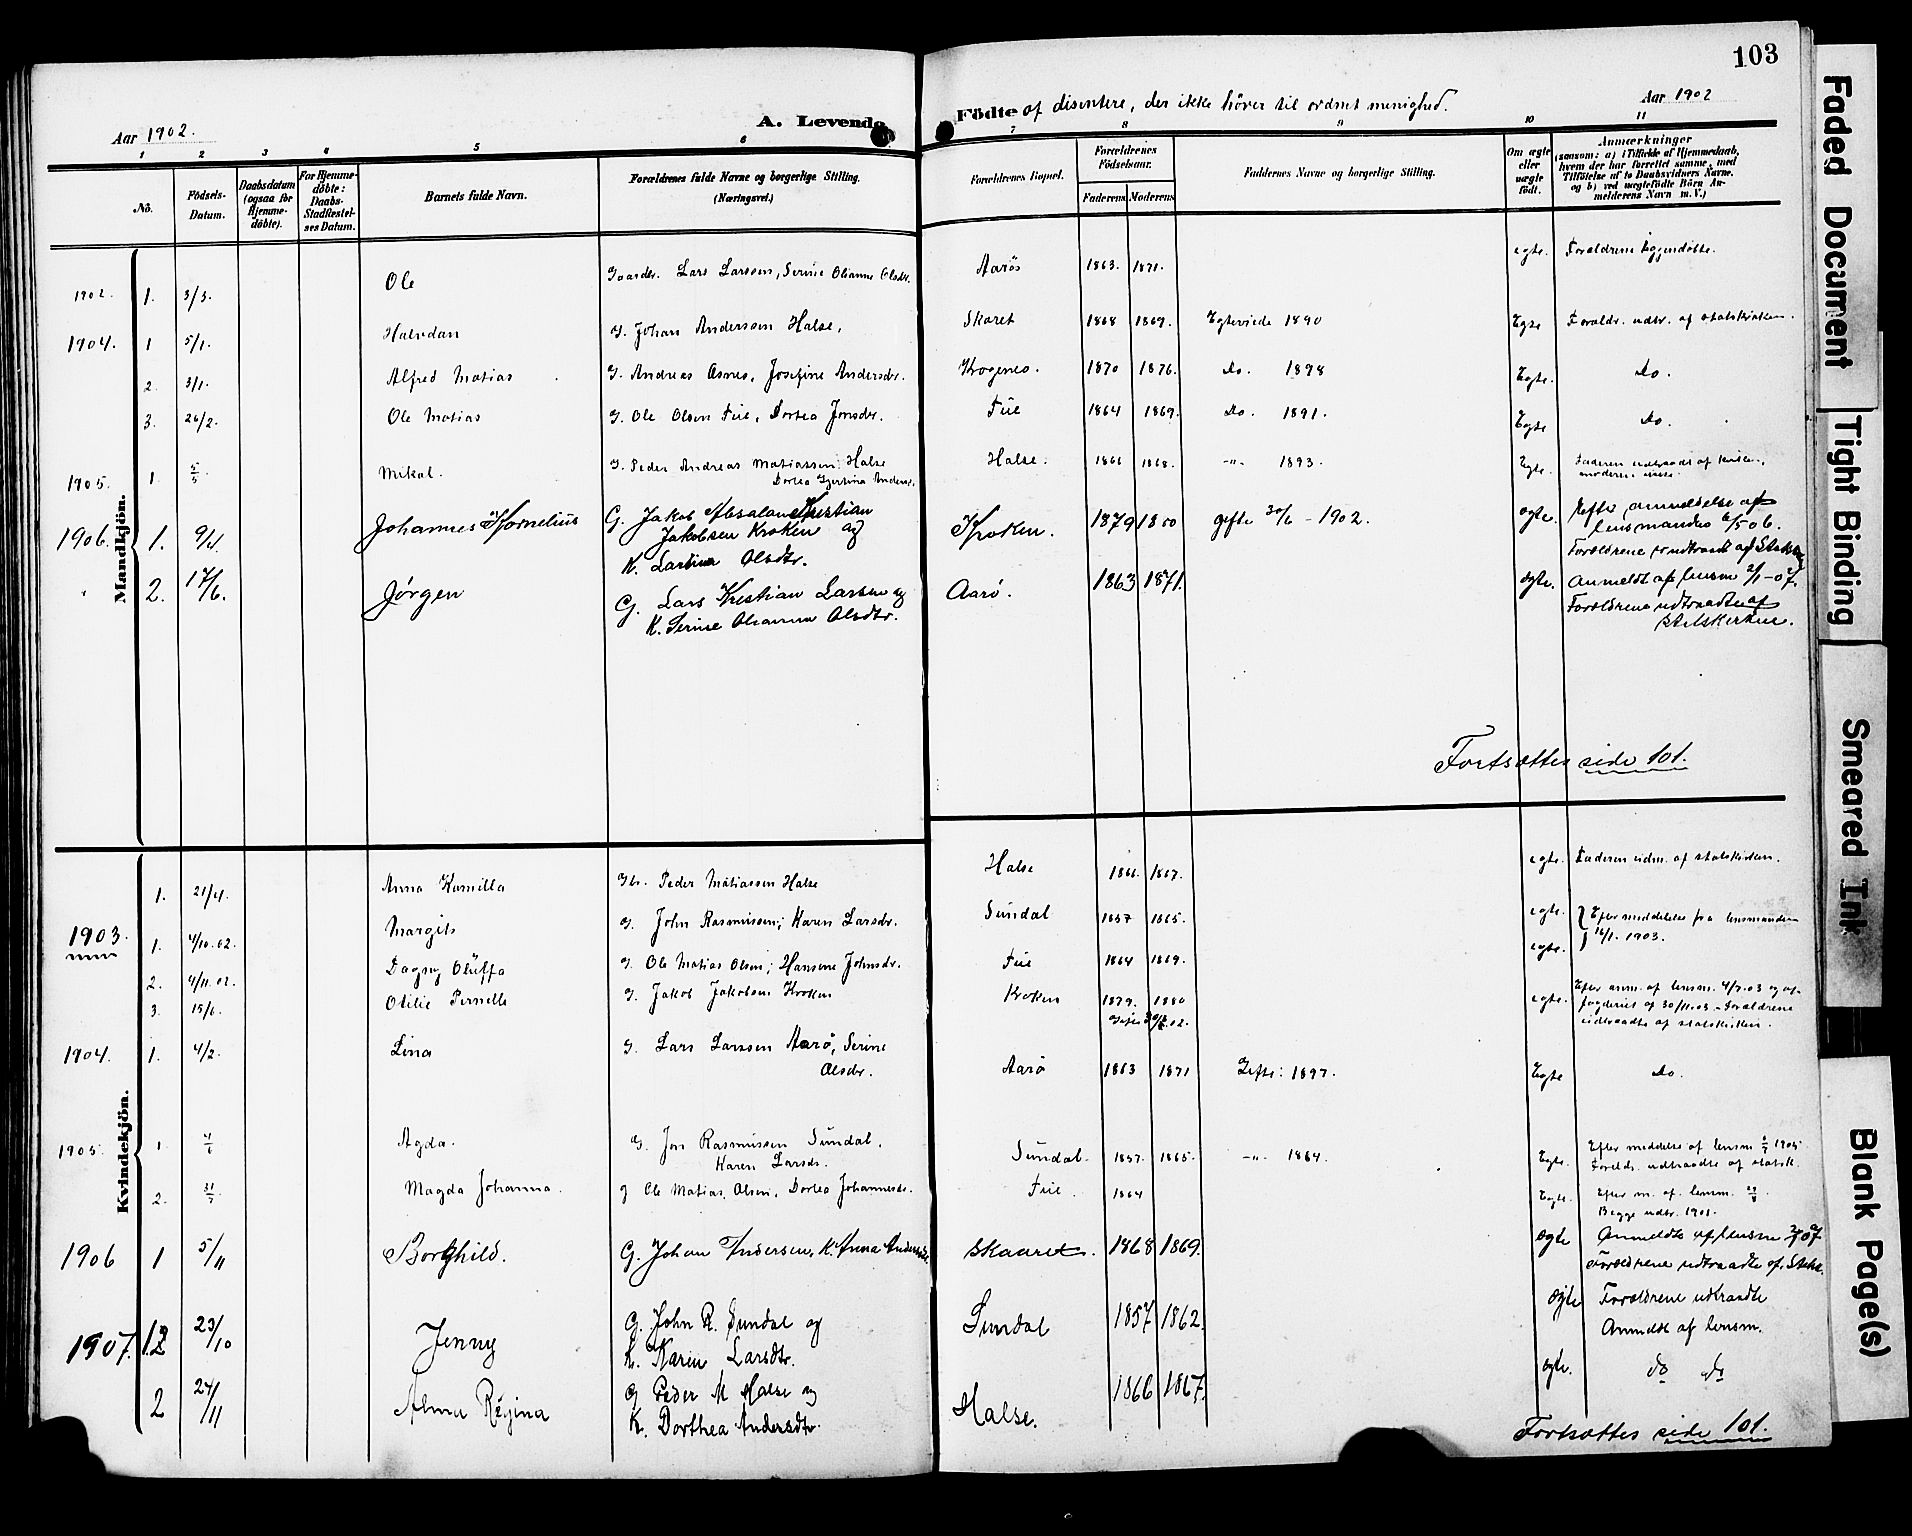 103
Aar 1902.
A. Levende
Födte af disentere, der ikke hörer til ordnet menighed.
Aar 1902
1 2 3 4 5 6 7 8 9 10 11
No.
Födsels-Datum.
Daabsdatum (ogsaa for Hjemmedöbte).
For Hjemmedöbte: Daabs-Stadfæstelses Datum.
Barnets fulde Navn.
Forældrenes fulde Navne og borgerlige Stilling. (Næringsvei.)
Forældrenes Bopæl.
Forældrenes Födselsaar.
Faderens Moderens
Faddernes Navne og borgerlige Stilling.
Om ægte eller uægte födt.
Anmærkninger
(saasom: a) i Tilfælde af Hjemmedaab, hvem der har forrettet samme, med Tilföielse af to Daabsvidners Navne, og b) ved uægtefödte Börn Anmelderens Navn m. V.)
Mandkjön.
1902. 1. 3/3. Ole Gaardbr. Lars Larssen, Serine Olianne Olsdr. Aarös 1863. 1871. egte. Foreldrene
1904. 1 5/1. Halvdan G. Johan Anderssen Halse, Skaret 1868 1869. Egteviede 1890 Egte Foreldr. udtr. af statskirken.
2. 3/1. Alfred Matias G. Andreas Asnes, Josefine Andersdr. Krogenes. 1870 1876. Do. 1898 Egte. Do.
3. 26/2. Ole Matias G. Ole Olsen Fiie, Dortea Jonsdr. Fiie 1864 1869. Do. 1891. Egte Do.
1905. 1. 5/5. Mikal. G. Peder Andreas Matiassen Halse
Dortea Gjertina Anderse. Halse. 1866 1868. -"- 1893. Egte. Faderen udtraadt af kirken,
1906. 1. 9/4. Johannes Kornelius G. Jakob Absalon Kristian
Jakobsen Kroken og
K. Lartina Olsdtr. Kroken. 1879 1880 gifte 30/6 - 1902. ægte. Efter anmeldelse af
lensmanden 6/5 06.
Forældrene er udtraadt af Statsk
2. 17/6. Jørgen G. Lars Kristian Larsen og
K. Serine Olianna Olsdtr. Aarø. 1863 1871. ægte. Anmeldt af lensm 2/1-07.
Forældrene udtraadte af
Statskirken.
Fortsættes side 101.
Kvindekjön.
1. 21/4. Anna Kamilla Gbr. Peder Matiassen Halse Halse 1866. 1867. egte. Faderen udm. af statskirken.
1903. 1. 4/10.02. Margit G. John Rasmussen; Karen Larsdr. Sundal 1857 1865. egte. Efter meddelelse fra lensmanden
16/1. 1903.
2. 4/11.02. Dagny Oluffa G. Ole Matias Olsen; Hansine Johnsdr. Fiie 1864 1869. egte.
3. 15/6. Otilie Pernille G. Jakob Jakobsen Kroken Kroken 1879. 1880
Gifte 30/6.02. egte. Efter anm. af lensm. 4/7.03 og af
fogderiet af 30/11.03 - Foreldrene
udtraadte af statskirken.
1904. 1. 4/2. Lina G. Lars Larssen Aarö, Serine
Olsdr. Aarö 1863 1871 Gifte: 1897. Egte Do.
1905. 1. 4/6 Agda. G. Jon Rasmussen Sundal,
Karen Larsdr. Sundal. 1857. 1865. -"- 1884. Egte. Efter meddelse af lensm 1905.
Foreldr. udtraadte af statsk.
2. 31/7 Magda Johanna. G Ole Matias Olsen, Dortea Johannesdr. Fiie. 1864 Egte. Efter m. af lensm.
Begge udtr. 1901.
1906 1 5/11 Borghild. G. Johan Andersen, K. Anna Andersdr. Skaaret. 1868 1869. ægte Anmeldt af lensm 07
Forældrene udtraadte af Statsk.
1907. 12 23/10 Jenny G. John R. Sundal og
K. Karen Larsdtr. Sundal 1857 1862. ægte Forældrene udtraadte
Anmeldt af lensm.
2 24/11 Alma Regina G Peder M Halse og
K. Dorthea Andersdtr. Halse. 1866 1867. ægte. do do
Fortsættes side 101.
Faded Document
Tight Binding
Smeared Ink
Blank Page(s)